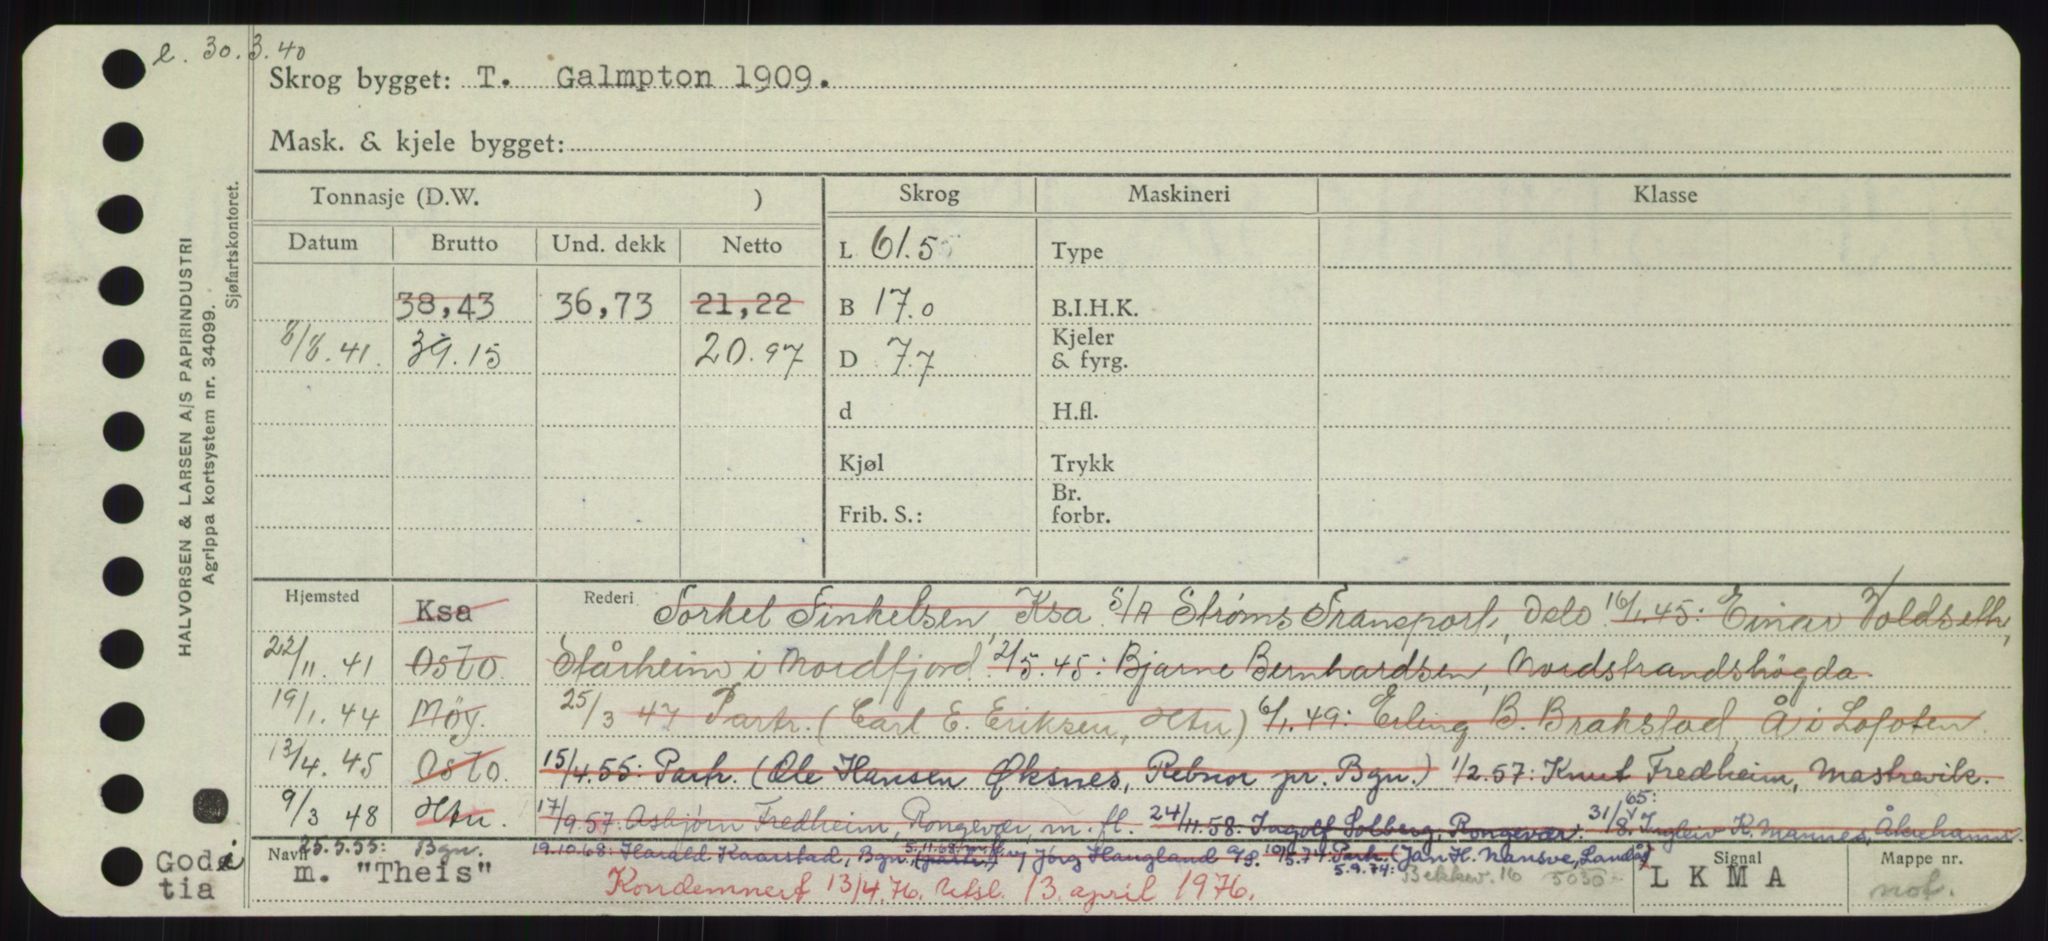 e. 30.3.40
Skrog bygget: T. Galmpton 1909.
Mask. & kjele bygget:
HALVORSEN & LARSEN A/S PAPIRINDUSTRI
Agrippa kortsystem nr. 34099.
Sjøfartskontoret.
Tonnasje (D.W. ) Skrog Maskineri Klasse
Datum Brutto Und. dekk Netto
L 61.5 Type
38,43 36,73 21,22 B 17.0 B.I.H.K.
8/8.41. 39.15 20.97 D 7.7 Kjeler & fyrg.
d H.fl.
Kjøl Trykk
Frib. S.: Br. forbr.
Hjemsted Ksa Rederi Torkel Finkelsen Ksa S/A Strøms Transport, Oslo 16/1.45: Einar Voldseth,
22/11 41 Oslo Stårheim i Nordfjord 2/5.45: Bjarne Bernhardsen, Nordstrandshögda
19/1.44 Möy. 25/3 47 Partr. (Carl E. Eriksen, Htu) 6/1.49: Erling B. Brakstad, Å i Lofoten.
13/4.45 Oslo. 15/4.55: Partr. (Ole Hansen Øksnes, Rebnor pr. Bgn.) 1/2.57: Knut Fredheim, Mastrevik.
9/3 48 Htu. 17/9.57: Asbjørn Fredheim, Rongevær, m. fl. 24/11.58: Ingolf Solberg, Rongevær. 31/8 65: Ingleiv K. Mannes, Åkrehamn.
Navn 25.5.55: Bgn. 19.10.68: Harald Kaarstad, Bgn. 5.11.68: (partr.) v/ Jörg Haugland 10/5.74: Partr. (Jan H. Mansve, Landås)
Godøi
tia
m. "Theis"
5.9.74: Bekkev. 16 5030
Kondemnert 13/4.76. Utsl. 13. april 1976.
Signal
L K M A
Mappe nr.
not.